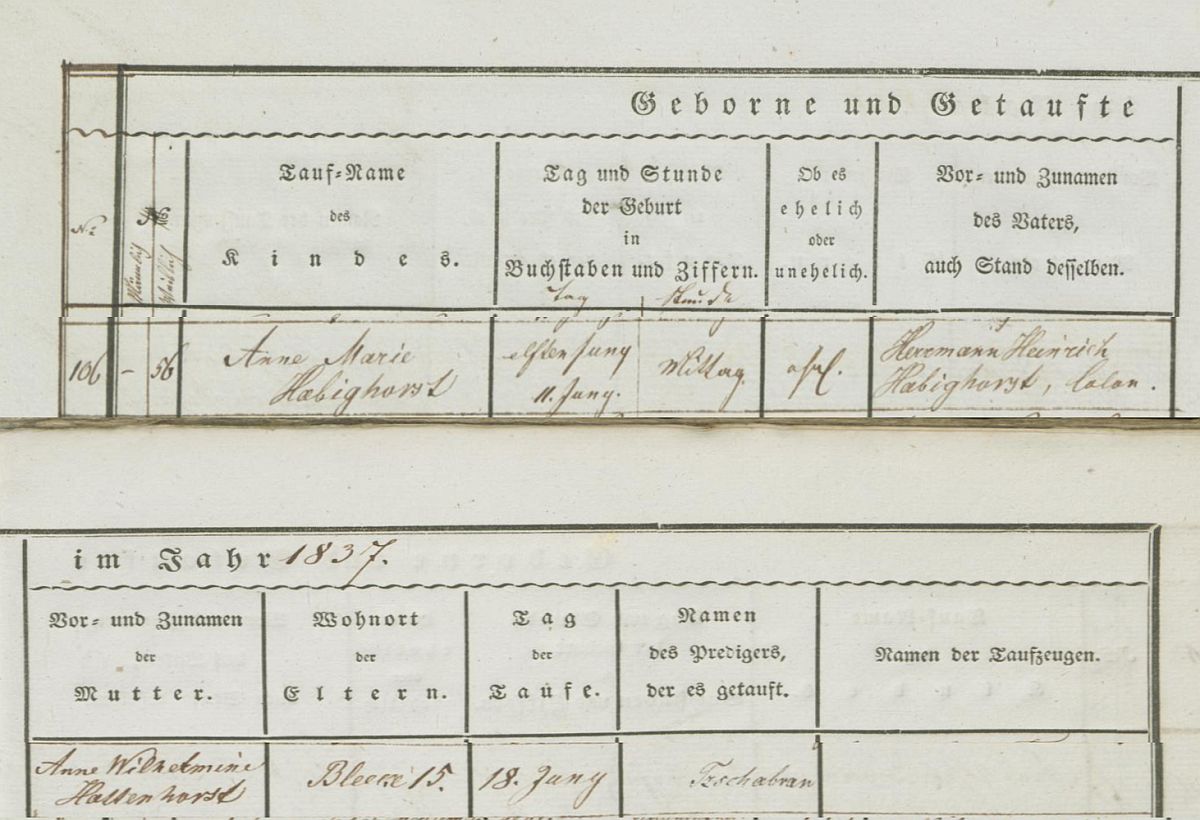 Geborne und Getaufte
No
Männlich
Weiblich
Tauf-Name
des
Kindes.
Tag und Stunde
der Geburt
in
Buchstaben und Ziffern.
Tag Stunde
Ob es
ehelich
oder
unehelich.
Vor- und Zunamen
des Vaters,
auch Stand desselben.
106 – 56
Anne Marie
Habighorst
elften Juny
11. Juny.
Mittag.
ehel.
Herrmann Heinrich
Habighorst, Colon.
im Jahr 1837.
Vor- und Zunamen
der
Mutter.
Wohnort
der
Eltern.
Tag
der
Taufe.
Namen
des Predigers,
der es getauft.
Namen der Taufzeugen.
Anne Wilhelmine
Hattenhorst
15.
18. Juny
Tzschabran